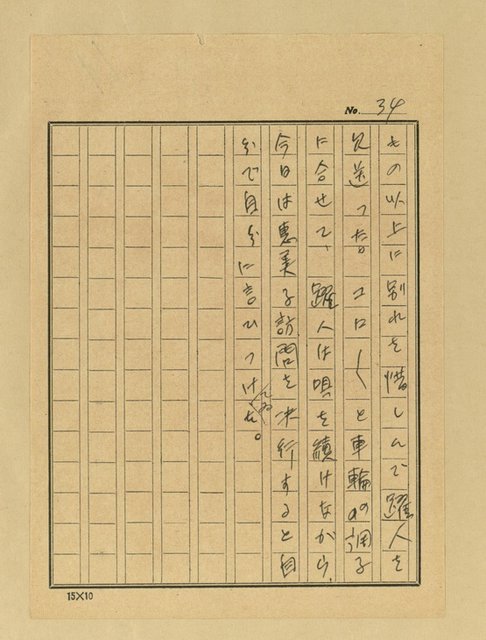 No. 34
もの以上に別れを惜しんで躍人を
見送った。コロ〱と車輪の調子
に合せて、躍人は唄を続けながら、
今日は恵美子訪問を決行すると自
分で自分に言ひつけた。
15×10